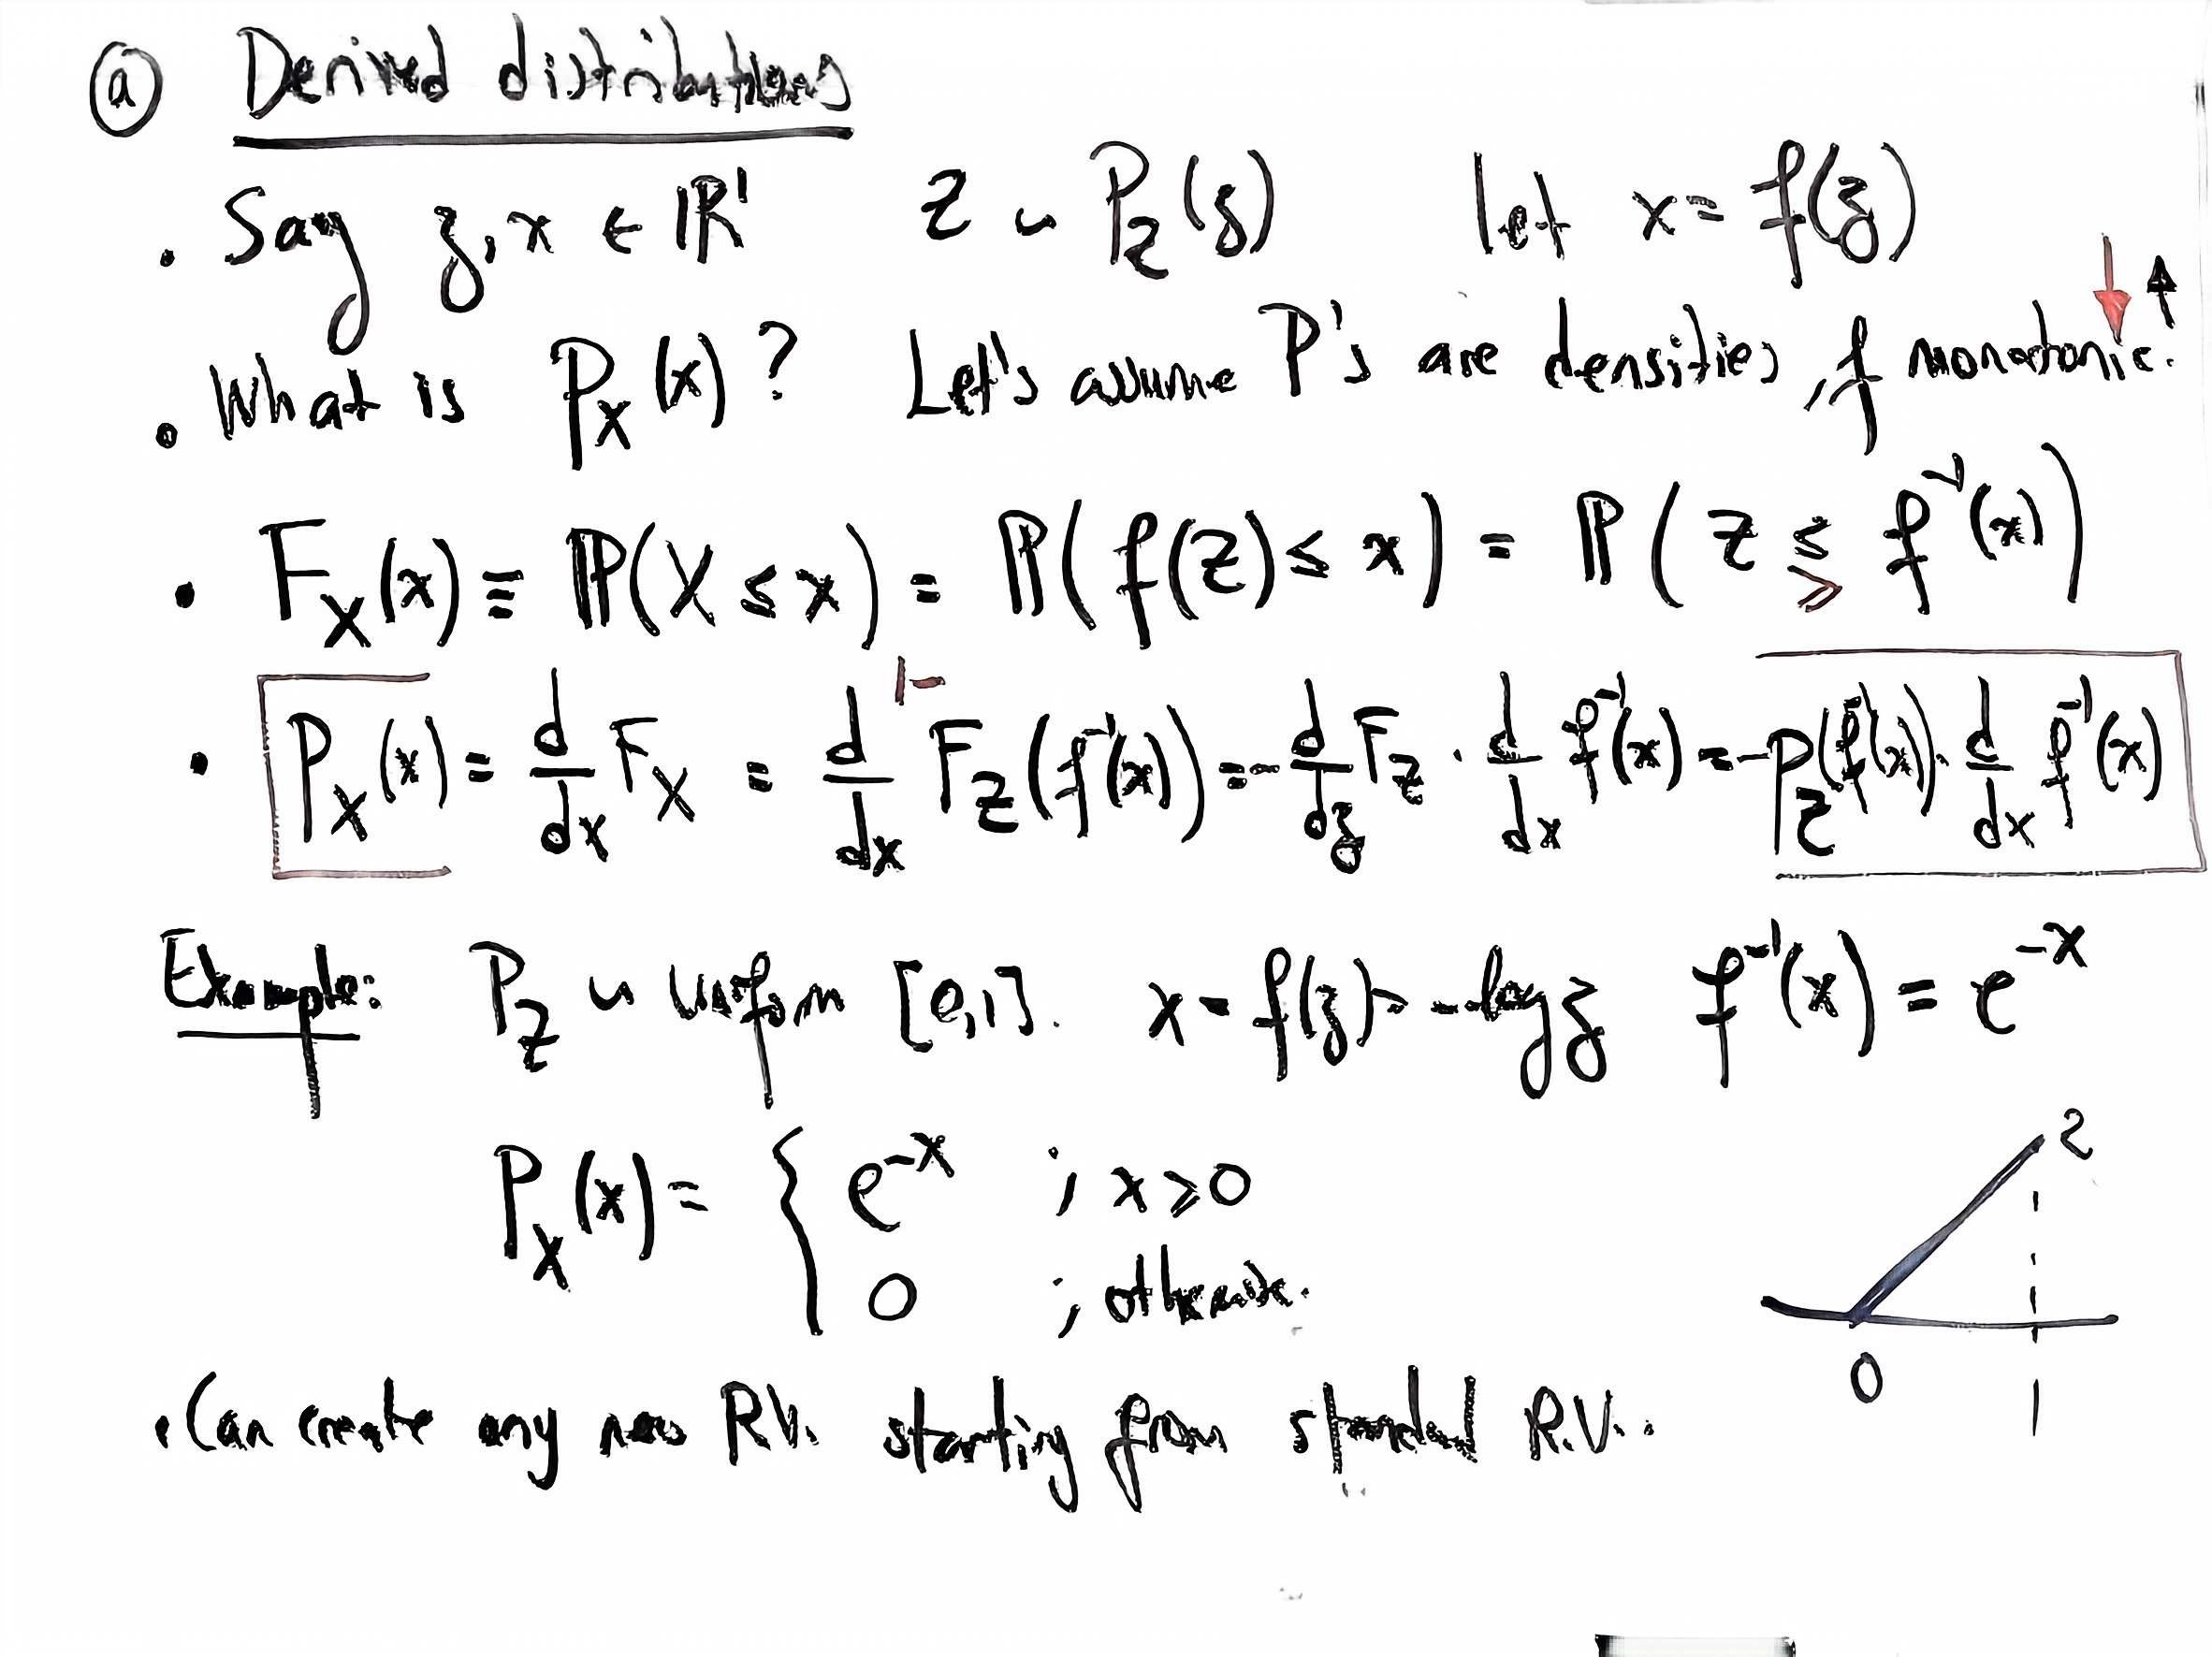 ⓐ Derived distributions
• Say z, x ∈ ℝ¹   Z ~ P_Z(z)   let x = f(z)
• What is P_X(x)?   Let's assume P's are densities, f monotonic. ↓ ↑
• F_X(x) ≡ ℙ(X ≤ x) = ℙ(f(Z) ≤ x) = ℙ(Z ≤ f⁻¹(x))
≥
• P_X(x) = d/dx F_X = d/dx 1- F_Z(f⁻¹(x)) = - d/dz F_Z · d/dx f⁻¹(x) = -P_Z(f⁻¹(x)) · d/dx f⁻¹(x)
Example: P_Z ~ Uniform [0,1].   x = f(z) = -log z   f⁻¹(x) = e^{-x}
P_X(x) = { e^{-x} ; x ≥ 0
0 ; otherwise.
2
0   1
• Can create any new R.V. starting from standard R.V..